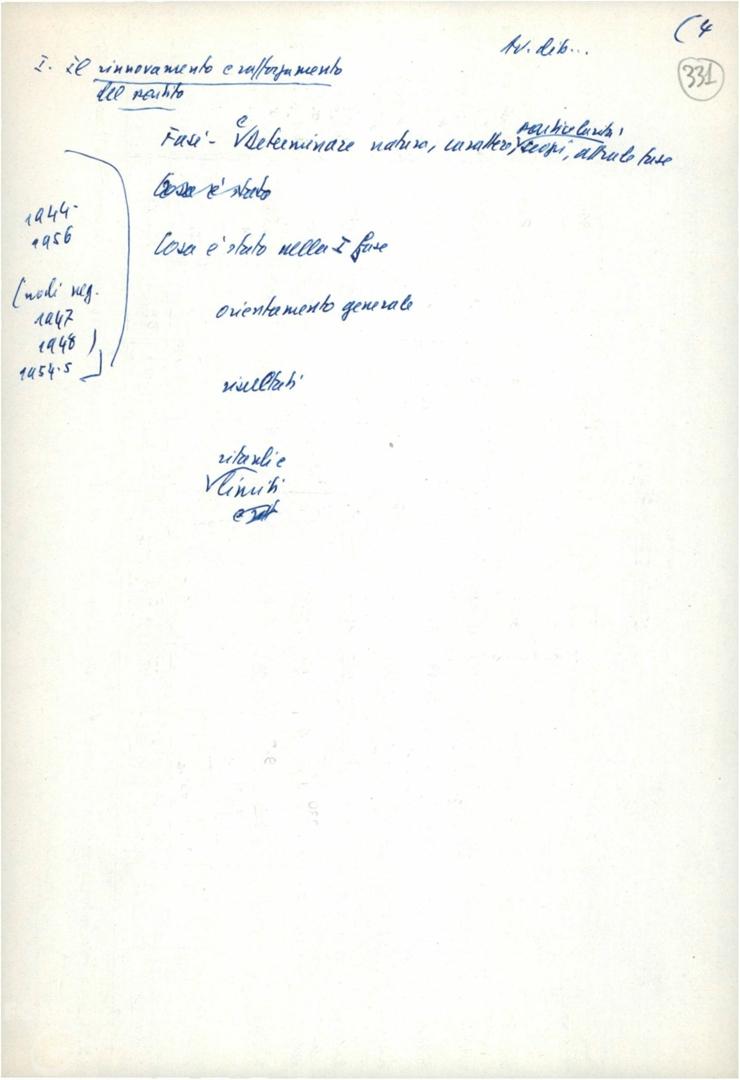 (4
331
I. Il rinnovamento e rafforzamento
del partito
particolarità,
Fasi - e Determinare natura, carattere, scopi, attuale fase
Cosa è stato
1944-
1956
Cosa è stato nella I fase
(nodi neg.
1947
1948)
1954-5
orientamento generale
risultati
ritardi e
limiti